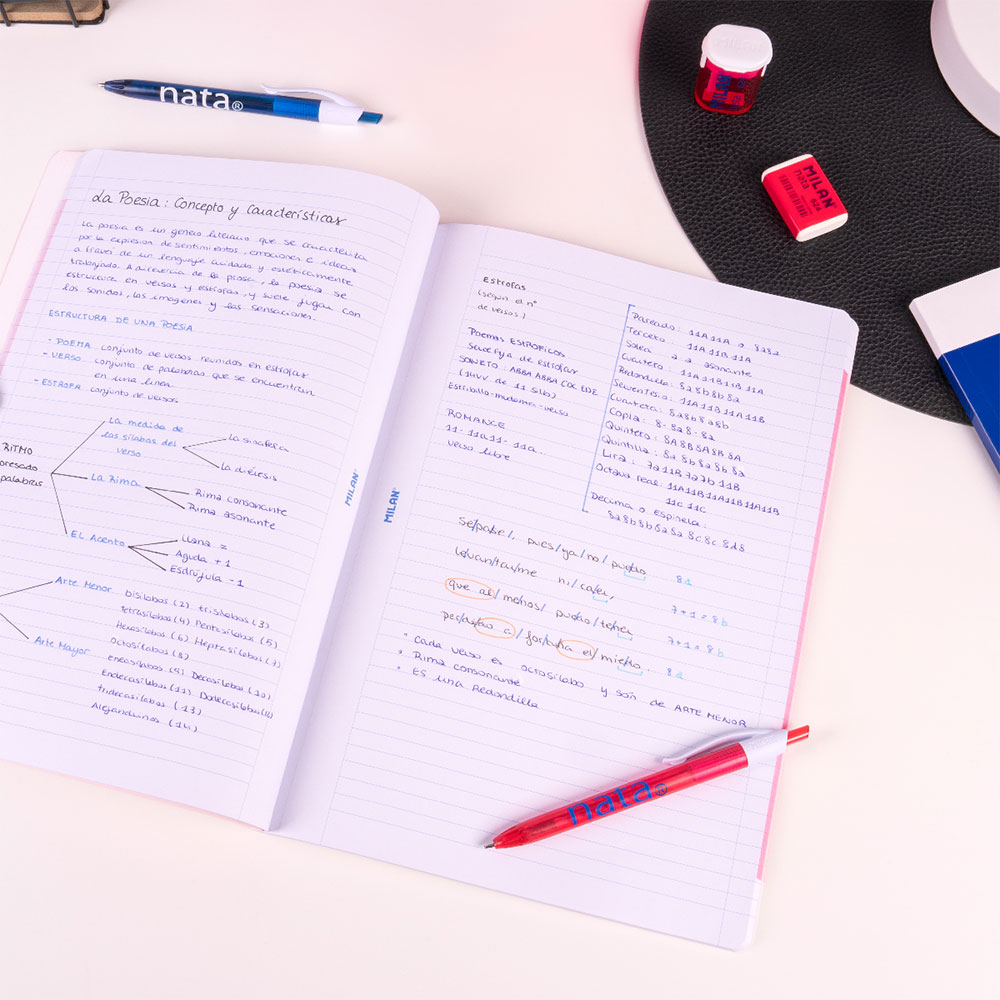 nata®
MILAN
MILAN
nata 624
La Poesia: Concepto y Características
La poesia es un genero literario que se caracteriza
por la expresion de sentimientos, emociones e ideas
a traves de un lenguaje cuidado y estéticamente
trabajado. A diferencia de la prosa, la poesia se
estructura en versos y estrofas, y suele jugar con
los sonidos, las imagenes y las sensaciones.
ESTRUCTURA DE UNA POESIA
- POEMA conjunto de versos reunidos en estrofas
- VERSO conjunto de palabras que se encuentran
en una linea
- ESTROFA conjunto de versos
RITMO
presado
palabras
La medida de
las sílabas del
verso
La sinalefa
La diéresis
La Rima
Rima consonante
Rima asonante
EL Acento
Llana =
Aguda +1
Esdrújula -1
Arte Menor
bisilabos (2) trisilabos (3)
tetrasilabos (4) Pentasilabos (5)
Hexasilabos (6) Heptasilabos (7)
Octosilabos (8)
Arte Mayor
eneasilabos (9) Decasilabos (10)
Endecasilabos (11) Dodecasilabos (12)
tridecasilabos (13)
Alejandrinos (14)
MILAN
MILAN
Estrofas
(según el nº
de versos)
Poemas ESTROFICOS
de estrofas
SONETO: ABBA ABBA CDE CDE
(14 vv de 11 silb)
Estribillo-mudanza-verso
ROMANCE
11- 11a 11- 11a.
verso libre
Pareado: 11A 11A o 8a 8a
Terceto: 11A 11B 11A
Solea: a - a asonante
Cuarteto: 11A 11B 11B 11A
Redondilla: 8a 8b 8b 8a
Serventesio: 11A 11B 11A 11B
Cuarteta: 8a 8b 8a 8b
Copla: 8- 8a 8- 8a
Quinteto: 8A 8B 8A 8B 8A
Quintilla: 8a 8b 8a 8b 8a
Lira: 7a 11B 7a 7b 11B
Octava real: 11A 11B 11A 11B 11A 11B
11C 11C
Decima o Espinela:
8a 8b 8b 8a 8a 8c 8c 8d 8
pues/ya/no/ puedo 8a
levan/tar/me ni/ca/er, 7+1=8b
que al/ menos/ puedo/ te/ner 7+1=8b
per/di/do a/ for/tu/na el/ miedo. 8a
• Cada verso es octosilabo y son de ARTE MENOR
• Rima consonante
• ES una Redondilla
nata®